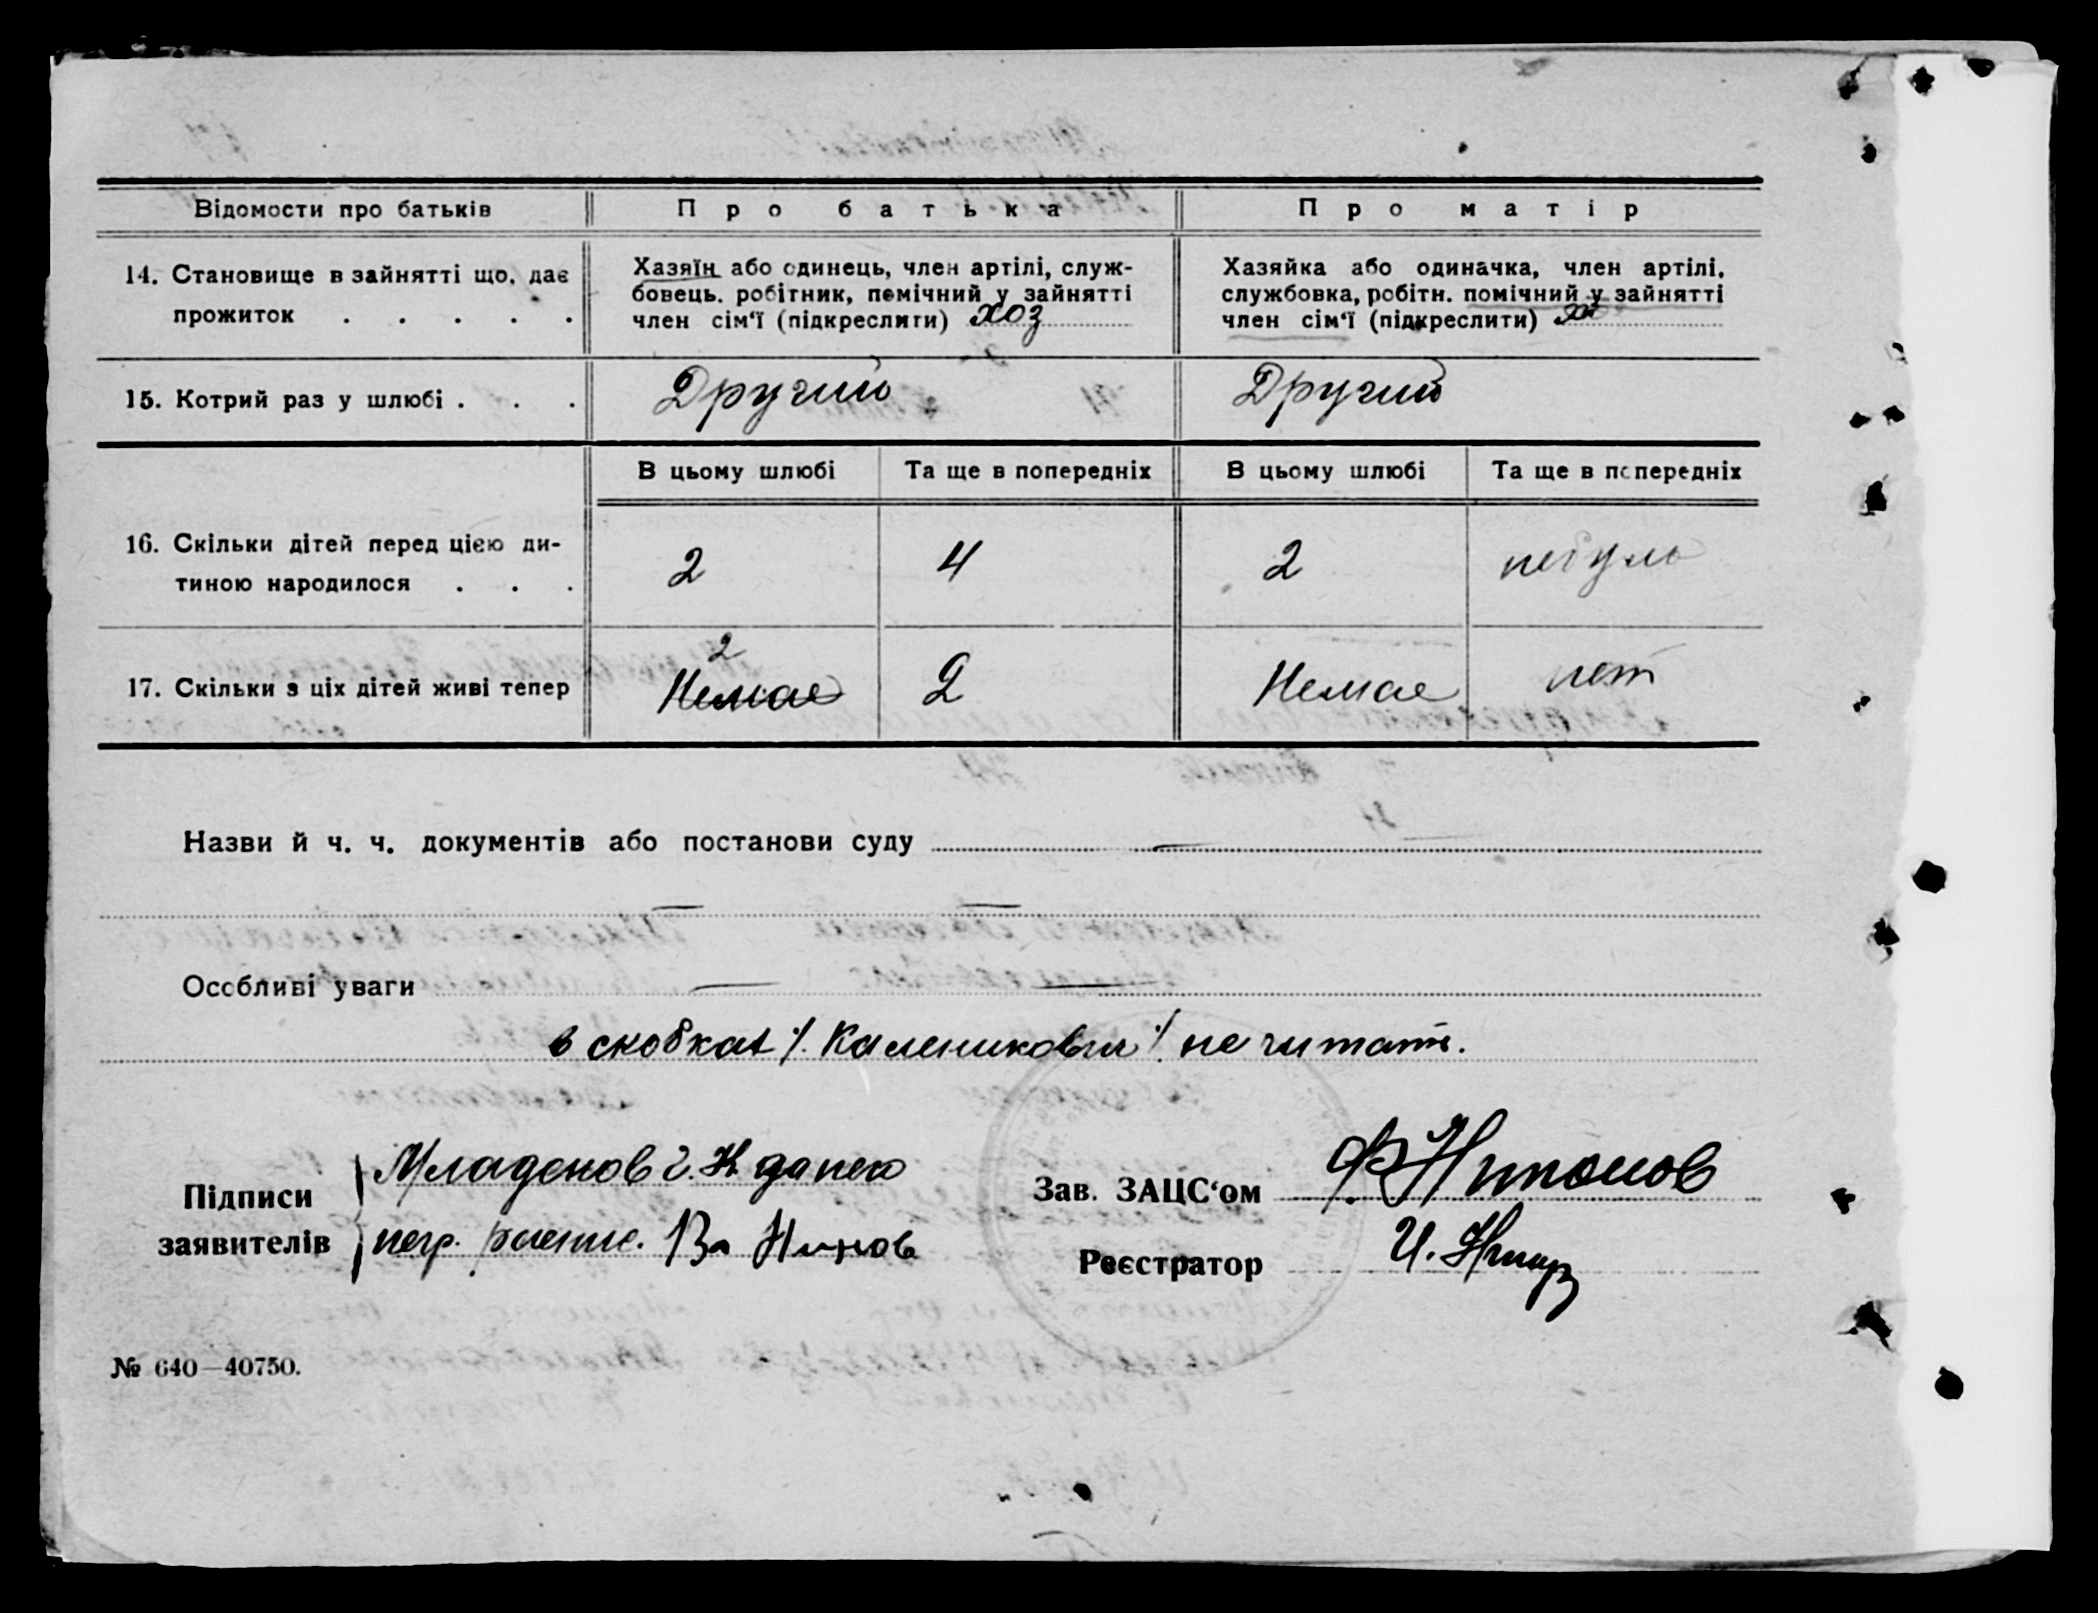 Відомости про батьків Про батька Про матір
14. Становище в зайнятті що, дає прожиток . . . . .
Хазяїн або одинець, член артілі, служ-
бовець. робітник, помічний у зайнятті
член сім‘ї (підкреслити) хоз
Хазяйка або одиначка, член артілі,
службовка, робітн. помічний у зайнятті
член сім‘ї (підкреслити)
15. Котрий раз у шлюбі . . . Другий Другий
В цьому шлюбі Та ще в попередніх В цьому шлюбі Та ще в попередніх
16. Скільки дітей перед цією ди-
тиною народилося . . . 2 4 2 небуло
2
17. Скільки з ціх дітей живі тепер Немае 2 Немае нет
Назви й ч. ч. документів або постанови суду —
— —
Особливі уваги — —
в скобках /. Калениковъм ./ не читать.
Підписи
заявителів
Младенов
негр. Нинов
Зав. ЗАЦС‘ом
Реєстратор И.
№ 640—40750.